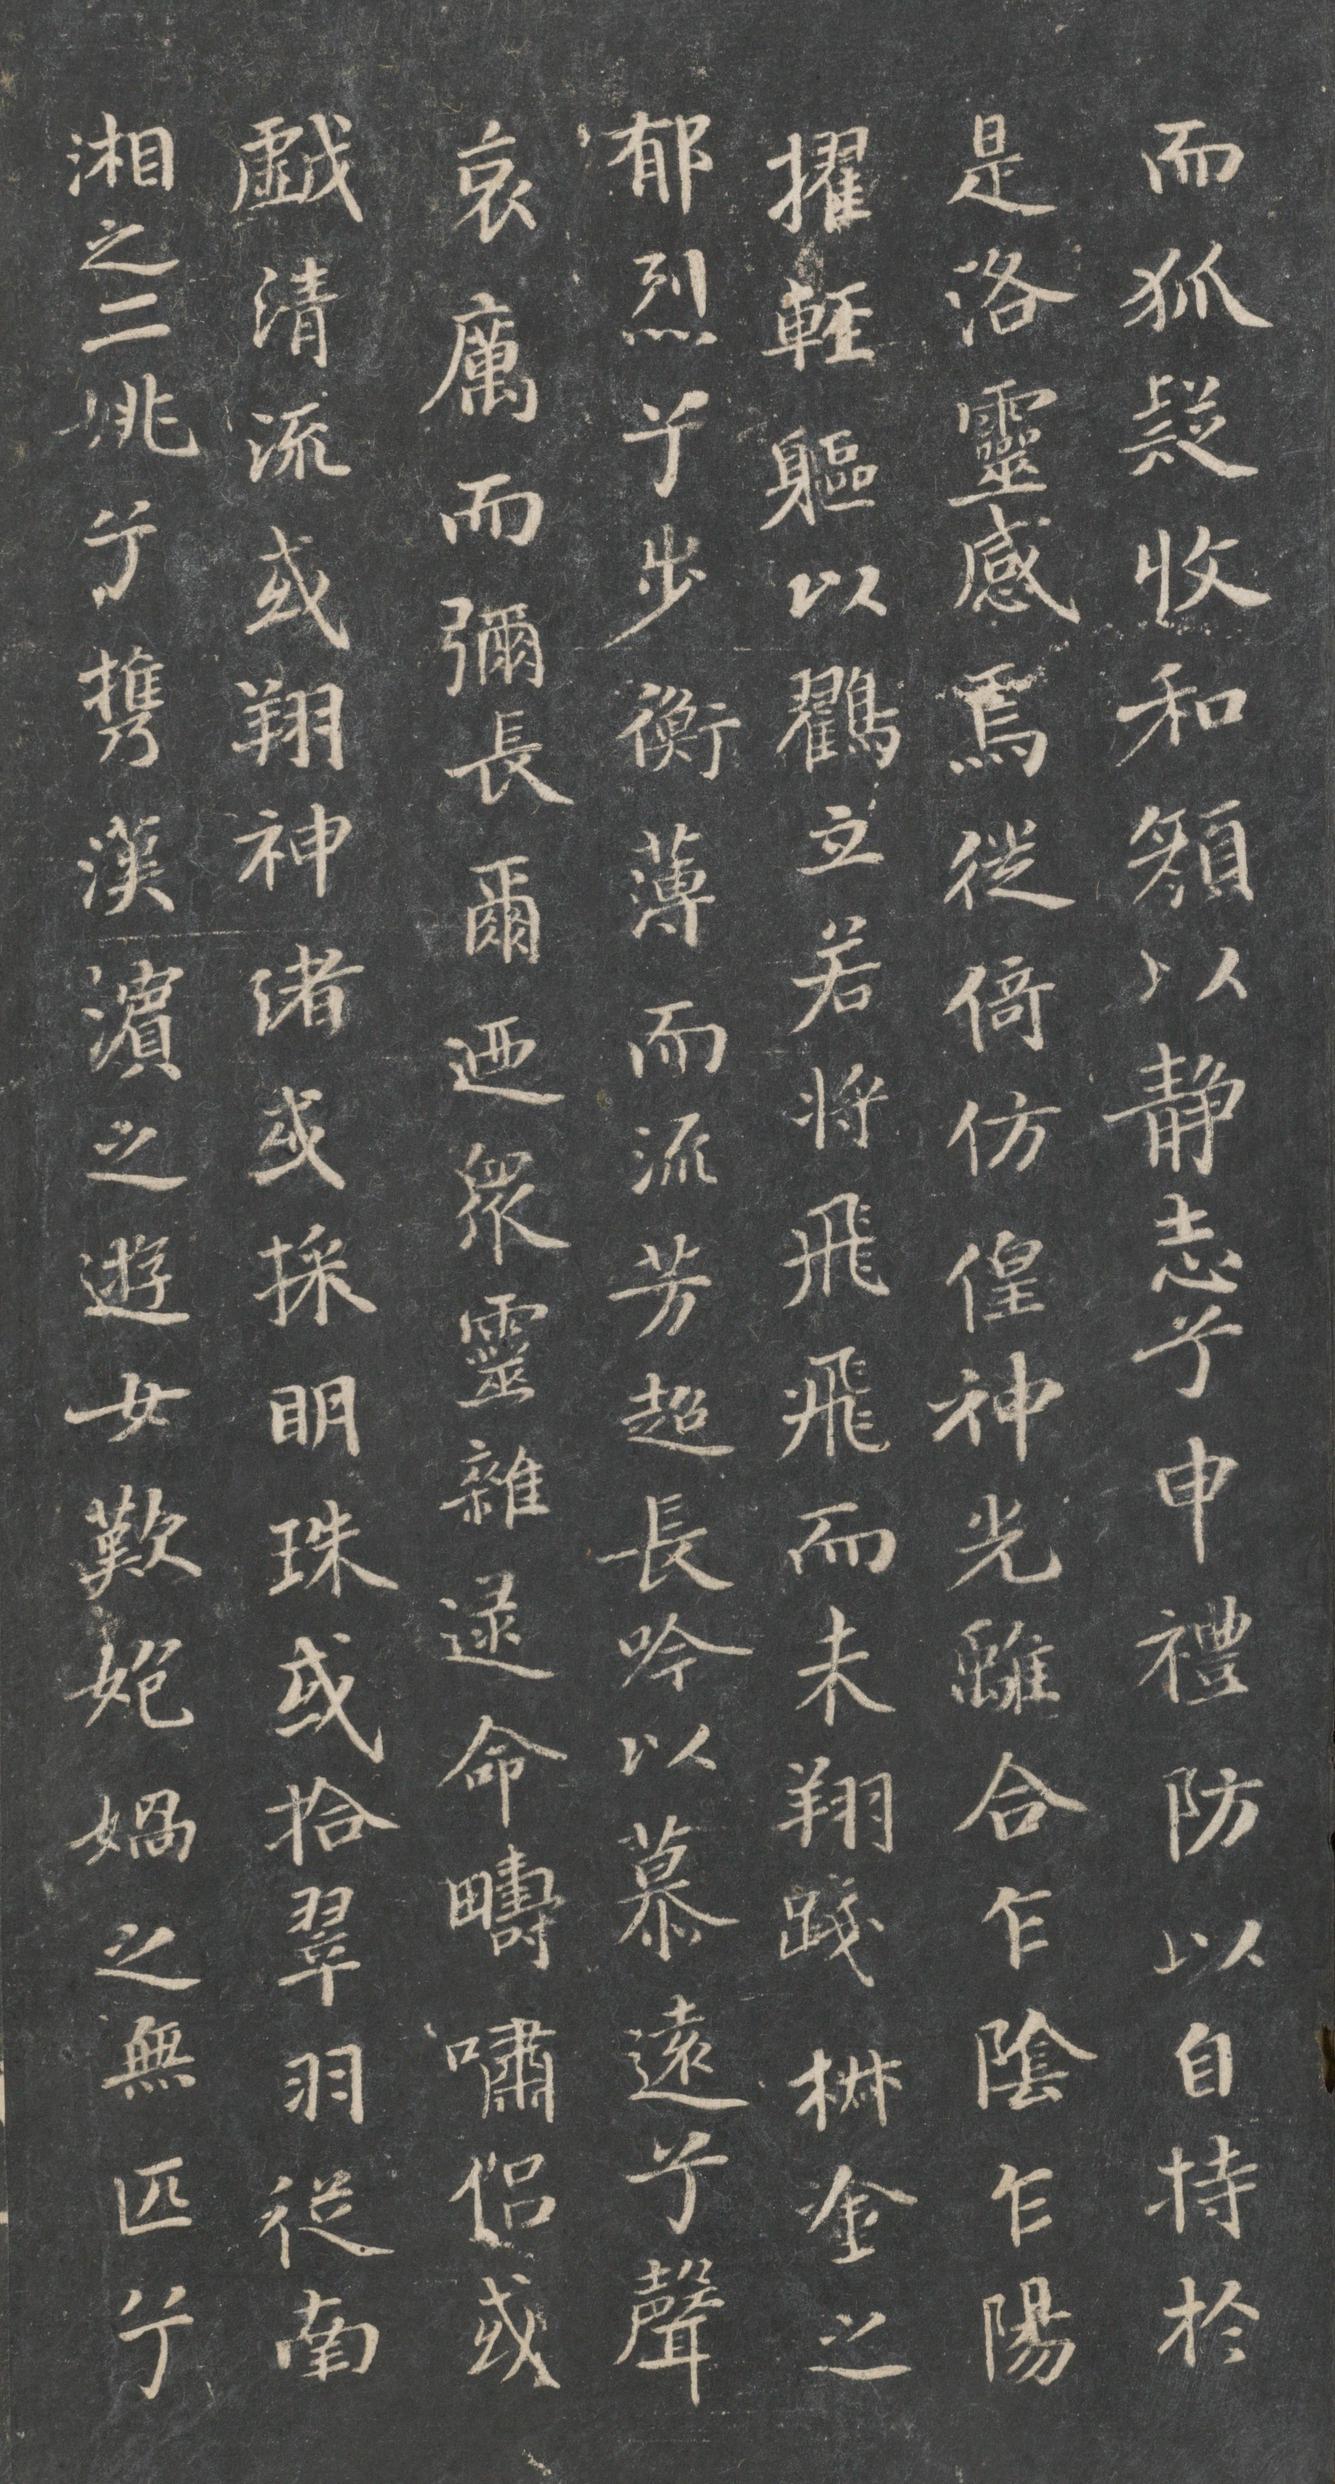 而狐疑收和顏以静志兮申禮防以自持於
是洛靈感焉從倚仿偟神光離合乍陰乍陽
擢輕軀以鸛立若將飛飛而未翔踐椒塗之
郁烈兮步衡薄而流芳超長吟以慕遠兮聲
哀厲而彌長爾迺衆靈雜逯命疇嘯侣或
戯清流或翔神渚或採明珠或拾翠羽從南
湘之二姚兮携漢濵之遊女歎妑媧之無匹兮